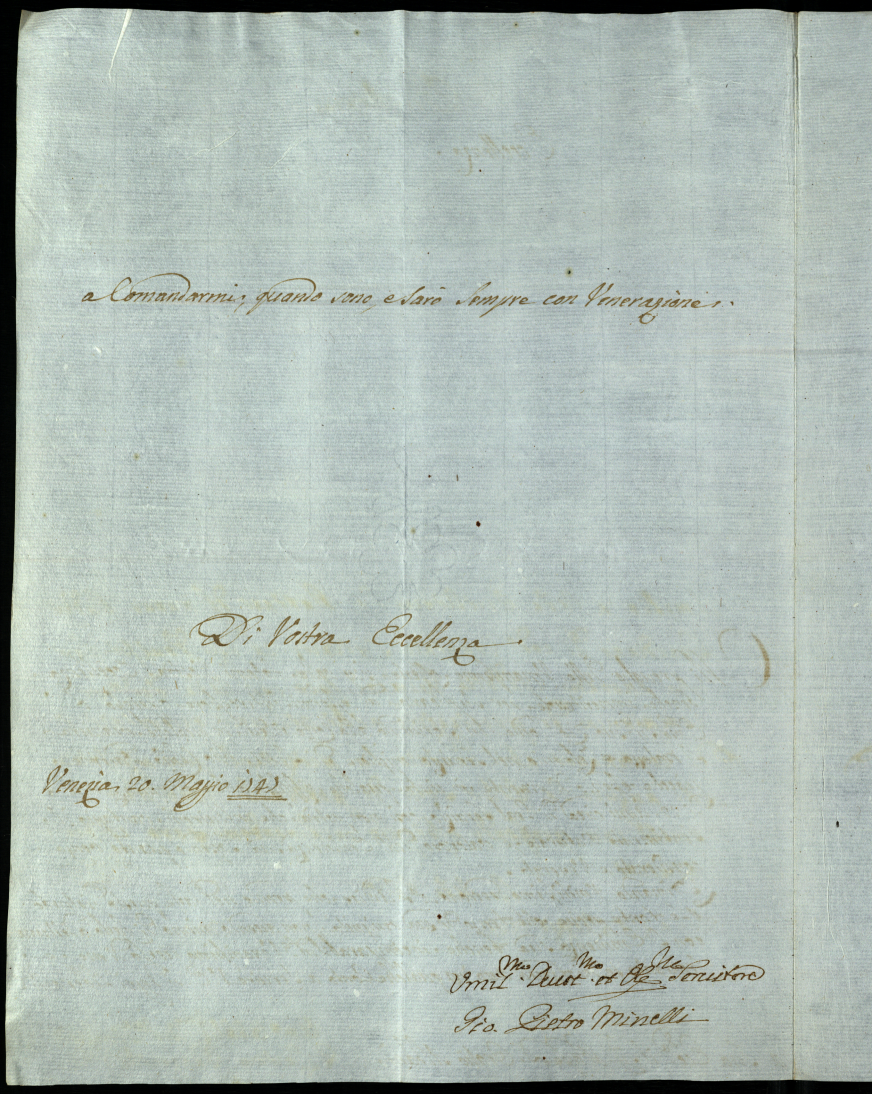 a Comandarmi; quando sono, e sarò sempre con Venerazione.
Di Vostra Eccellenza.
Venezia 20. Maggio 1747
Vmil.mo Deuot.mo et Servitore
Gio. Pietro Minelli